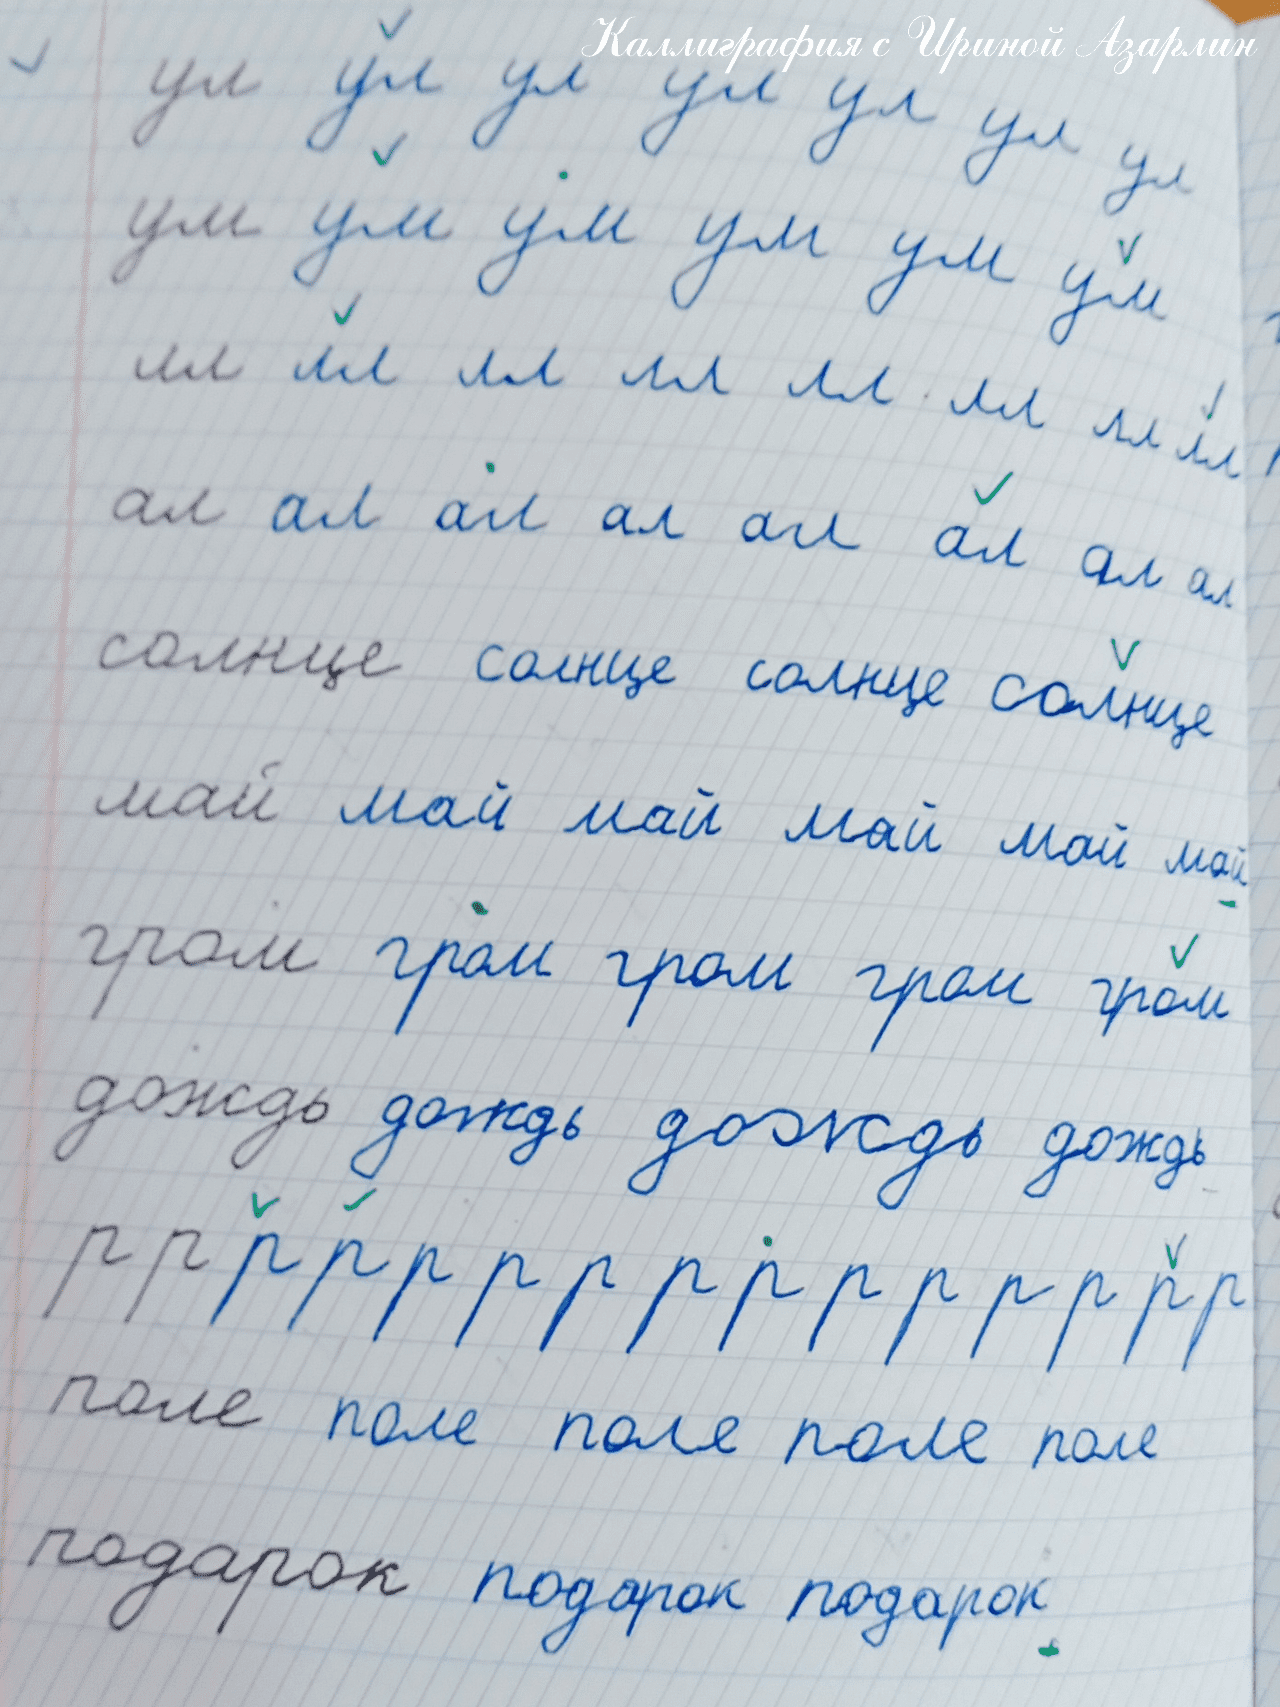 Каллиграфия с Ириной Азарлин
ул ул ул ул ул ул ул
ум ум ум ум ум ум
лл лл лл лл лл лл лл лл
ал ал ал ал ал ал ал ал
солнце солнце солнце солнце
май май май май май май
гром гром гром гром гром
дождь дождь дождь дождь
р р р р р р р р р р р р р р р
поле поле поле поле поле
подарок подарок подарок